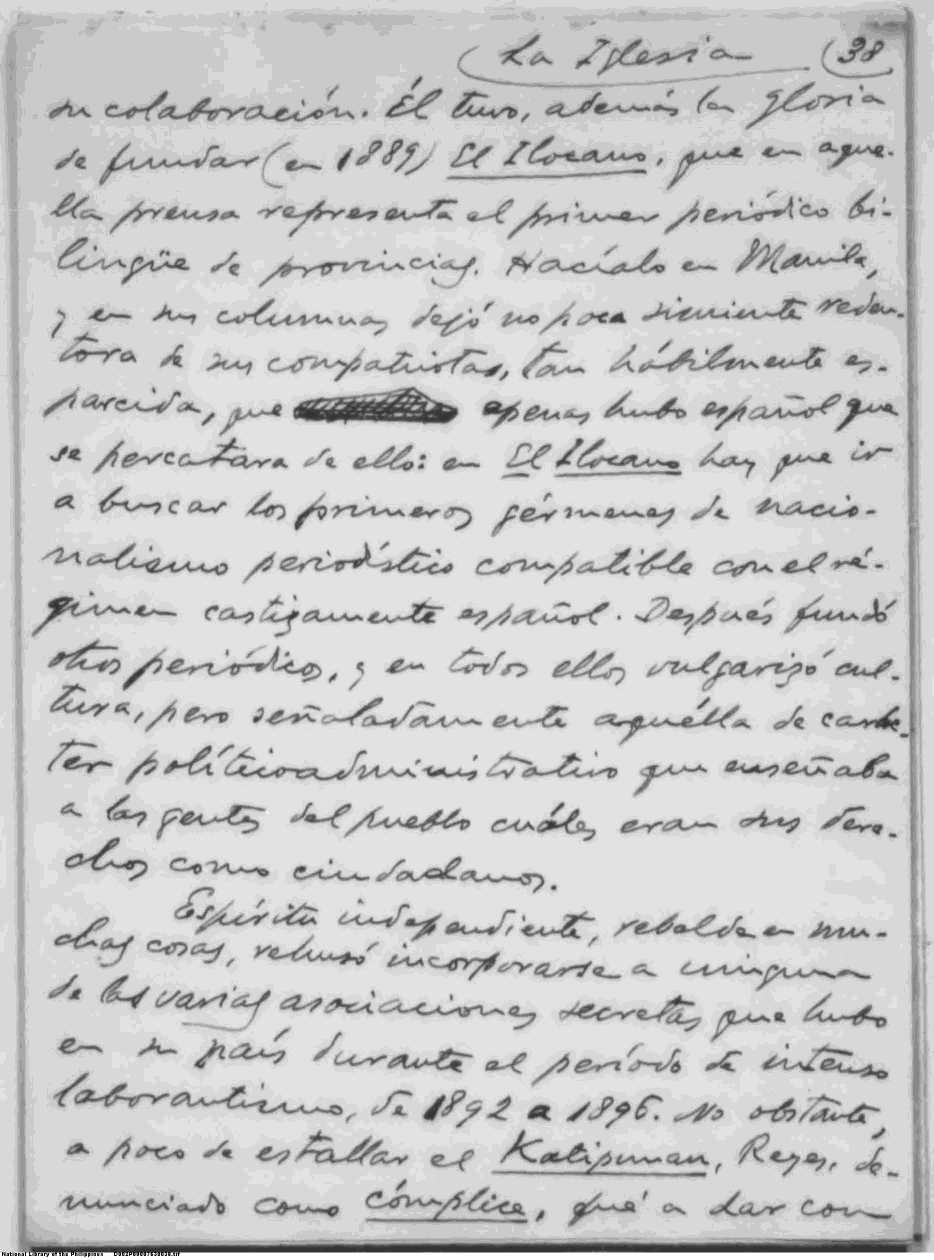 La Iglesia (38
su colaboración. Él tuvo, además la gloria
de fundar (en 1889) El Ilocano, que en aque-
lla prensa representa el primer periódico bi-
lingüe de provincias. Hacíalo en Manila,
y en sus columnas dejó no poca simiente reden-
tora de sus compatriotas, tan hábilmente es-
parcida, que apenas hubo español que
se percatara de ello: en El Ilocano hay que ir
a buscar los primeros gérmenes de nacio-
nalismo periodístico compatible con el ré-
gimen castizamente español. Después fundó
otros periódicos, y en todos ellos vulgarizó cul-
tura, pero señaladamente aquélla de carác-
ter políticoadministrativo que enseñaba
a las gentes del pueblo cuáles eran sus dere-
chos como ciudadanos.
Espíritu independiente, rebelde en mu-
chas cosas, rehusó incorporarse a ninguna
de las varias asociaciones secretas que hubo
en su país durante el período de intenso
laborantismo, de 1892 a 1896. No obstante,
a poco de estallar el Katipunan, Reyes, de-
nunciado como cómplice, fué a dar con
National Library of the Philippines